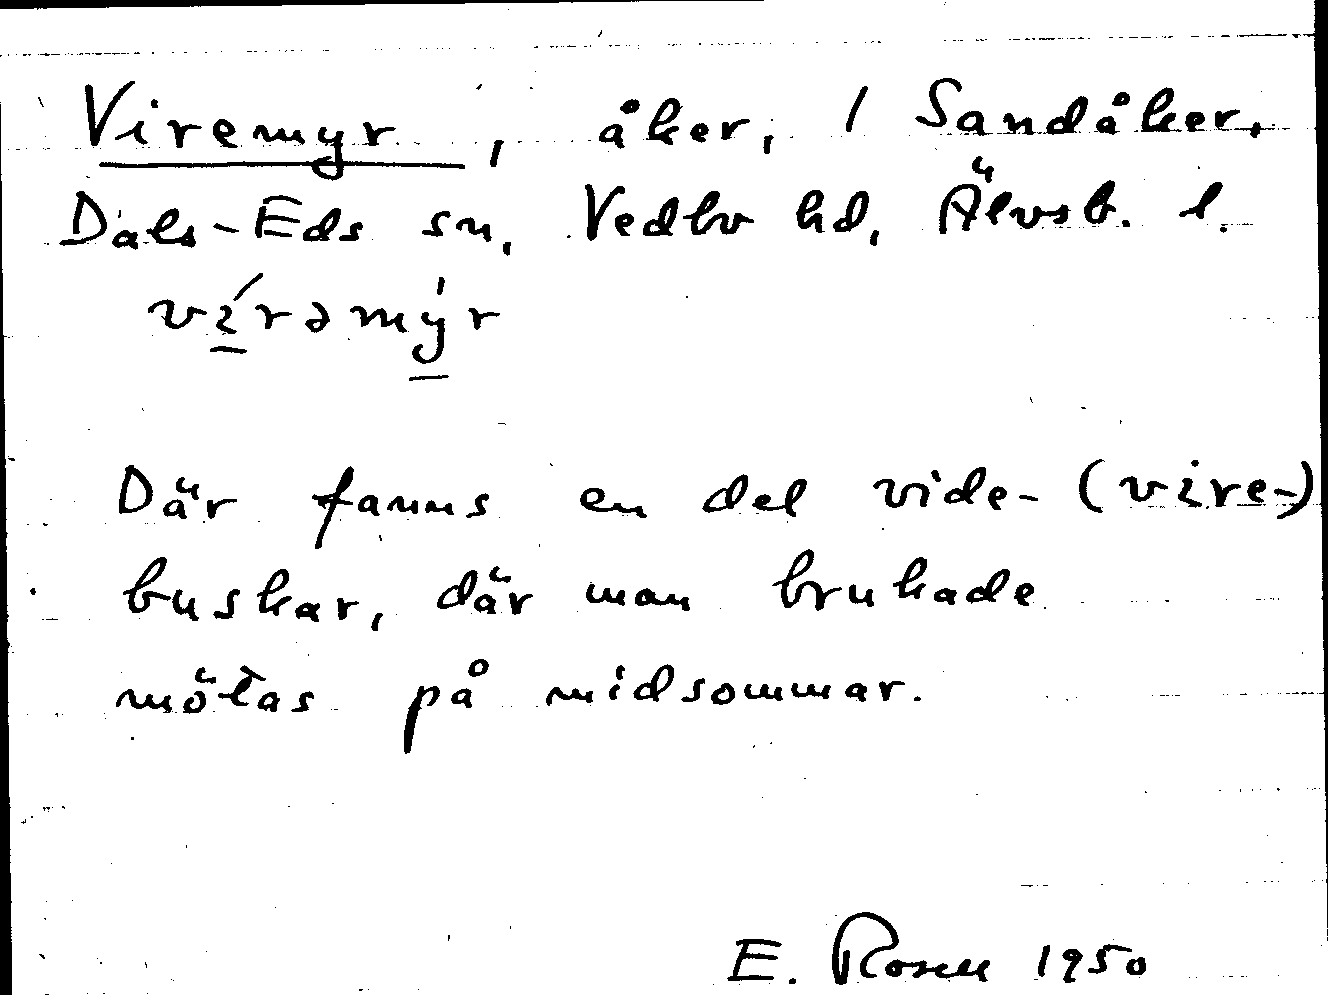 Viremyr, åker, / Sandåker,
Dals-Eds sn, Vedbo hd, Älvsb. l.
vírəmy̍r
Där fanns en del vide- (vire-)
buskar, där man brukade
mötas på midsommar.
E. Rosell 1950